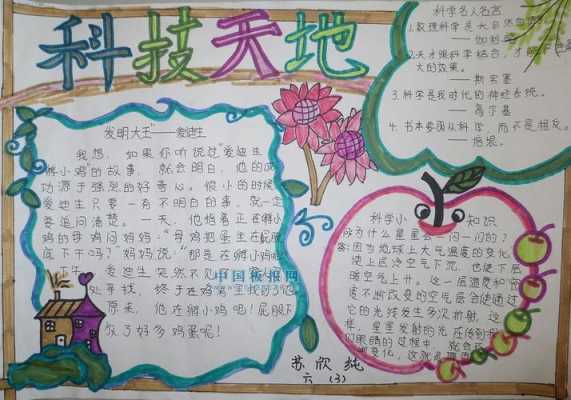 科技天地
发明大王——爱迪生
我想，如果你听说过"爱迪生
孵小鸡"的故事，就会明白，他的成
功源于强烈的好奇心。很小的时候
爱迪生只要一有不明白的事，就一定
要追问清楚。一天，他指着正在孵小
鸡的母鸡问妈妈："母鸡把蛋坐在屁股
底下干吗？"妈妈说："那是在孵小鸡
爱迪生突然不见
处寻找，终于在鸡窝里找到了他
原来，他在孵小鸡呢！屁股下
放了好多鸡蛋呢！
中国板报网
科学名人名言
1.数理科学是大自然
——伽利略
2.天才跟科学结合，才能
大的效果。
——斯宾塞
3.科学是我时代的神经系统。
——高尔基
4.书本要跟从科学，而不是相反。
——培根。
科学小知识
为什么星星会一闪一闪的？
答：因为地球上大气温度的变化，
使上层冷空气下沉，也使下层
暖空气上升。这一层温度和密
度不断改变的空气层会使通过
它的光线发生多次折射，这
样，星星发射的光在传到
们眼睛的过程中，就会
变化，这就
苏欣纯
六（3）